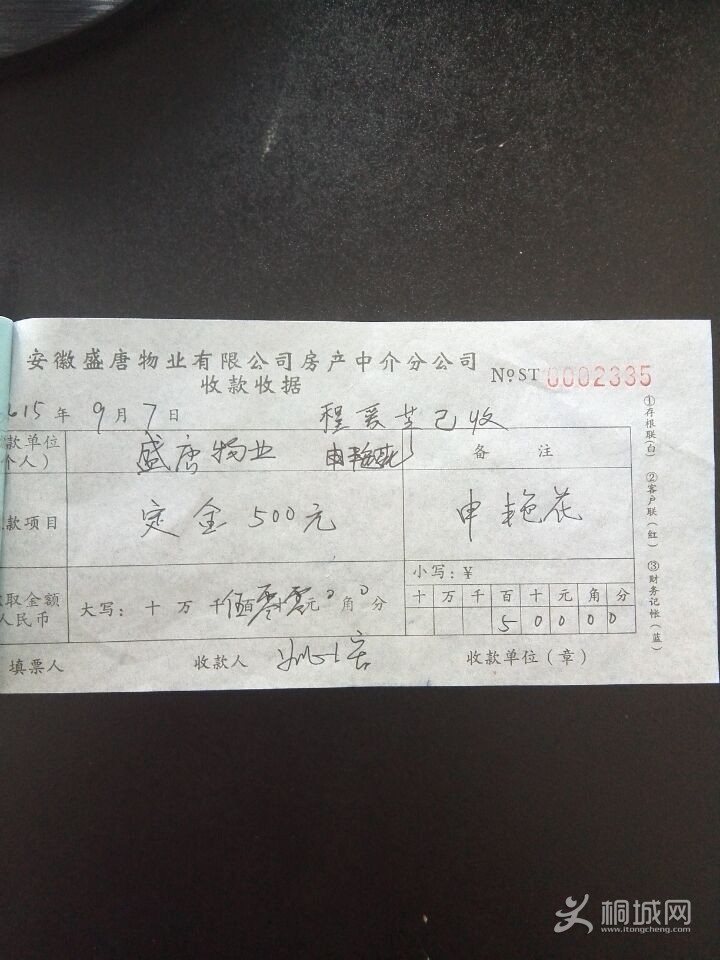 安徽盛唐物业有限公司房产中介分公司
收款收据 NºST 0002335
615年9月7日 程爱芝已收
款单位 盛唐物业 申艳花 备注
个人）
款项目 定金500元 申艳花
小写：¥
取金额 大写：十万千伍百零十零元0角0分 十万千百十元角分
人民币 50000
填票人 收款人 收款单位（章）
①存根联（白） ②客户联（红） ③财务记帐（蓝）
桐城网
www.itongcheng.com